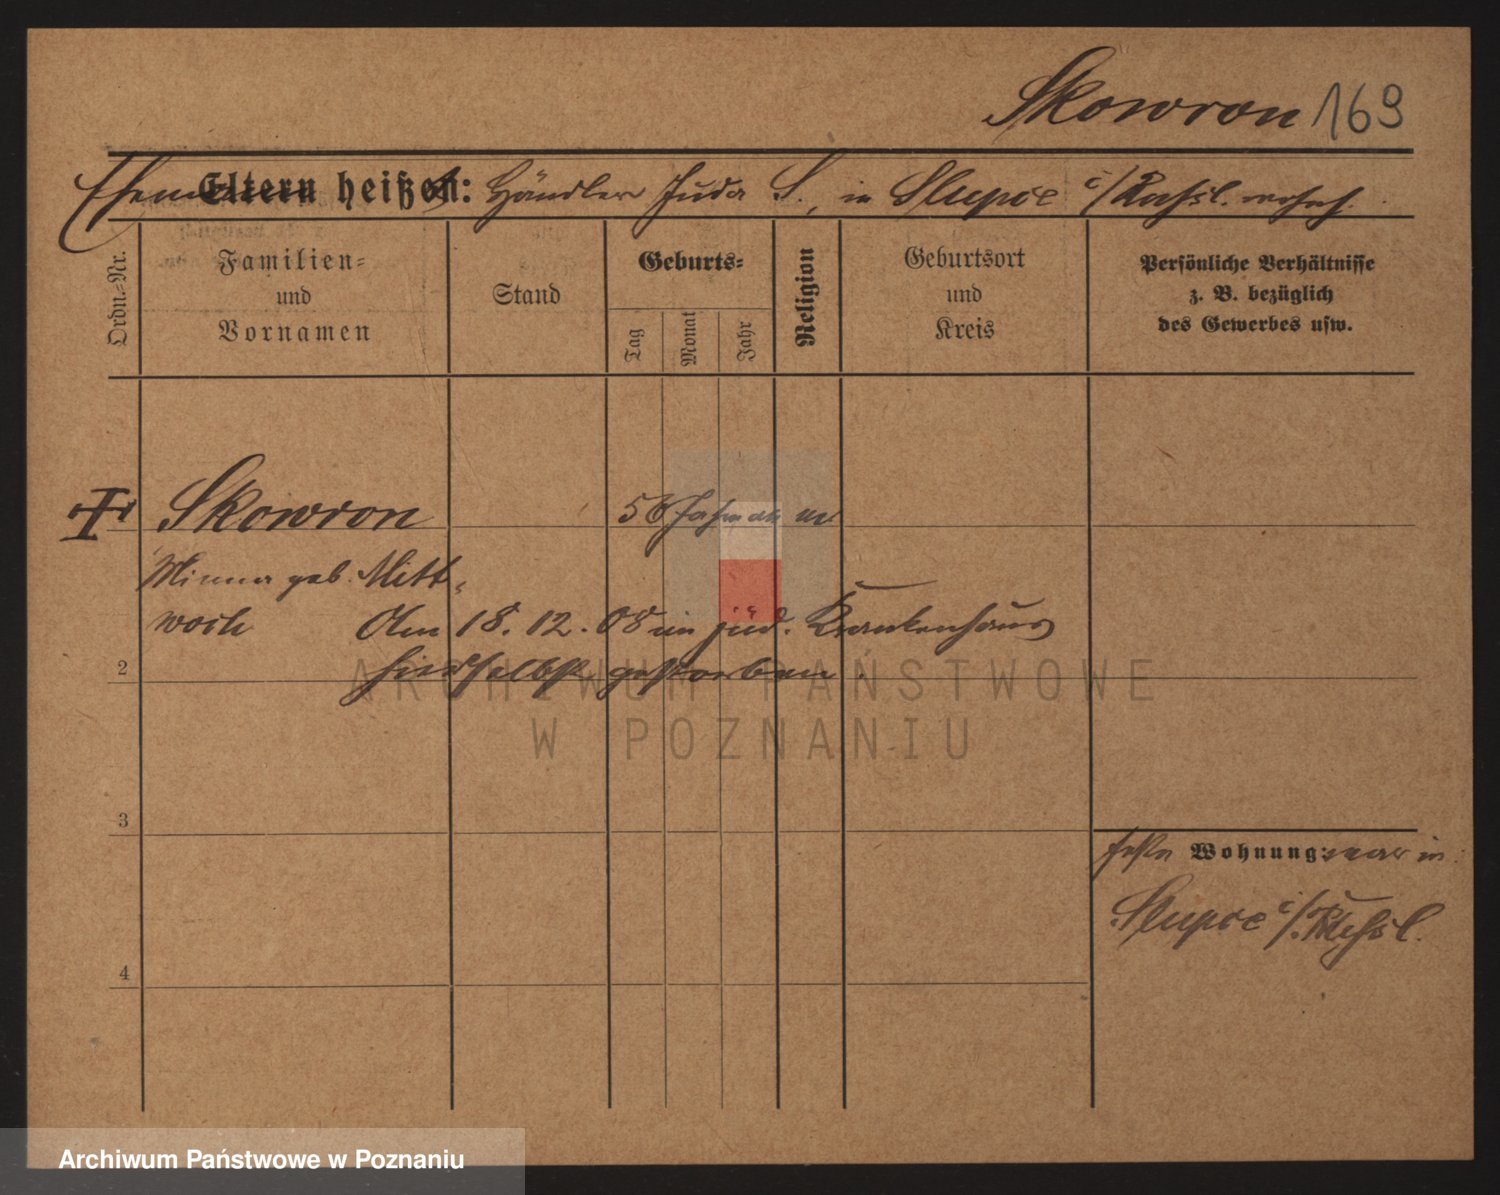 Skowron 169
Ehemann Eltern heißen: Händler Juda S., in Slupce i/Rußl. wohnh.
Ordn.-Nr.
Familien-
und
Vornamen
Stand
Geburts-
Tag
Monat
Jahr
Religion
Geburtsort
und
Kreis
Persönliche Verhältnisse
z. B. bezüglich
des Gewerbes usw.
Skowron 56 Jahre alt
Minna geb. Mitt-
woch Am 18.12.08 im jüd. Krankenhaus
2 hierselbst gestorben.
ARCHIWUM PAŃSTWOWE
W POZNANIU
3
Wohnung: war in
Slupce i/Rußl.
4
Archiwum Państwowe w Poznaniu